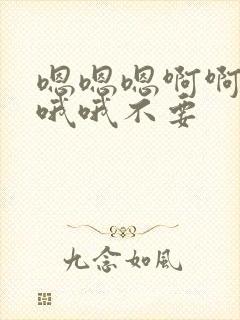 嗯嗯嗯啊啊
哦哦不要
九念如風